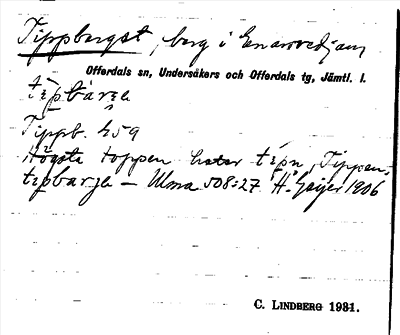 Tippberget, berg i Enarvedjan
Offerdals sn, Undersåkers och Offerdals tg, Jämtl. l.
tɩpbàrjə
Tippb. K 59
Högsta toppen heter tɩpn, Tippen.
tɩpbarjə — Ulma 508:27 H. Geijer 1906
C. LINDBERG 1931.